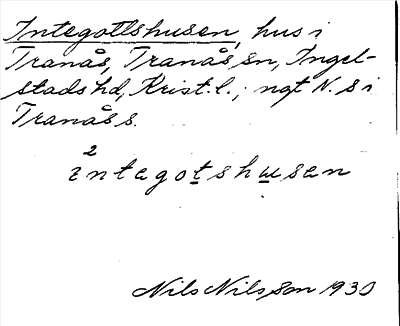 Integottshusen, hus i
Tranås, Tranås sn, Ingel-
stads hd, Krist. l.; ngt N. s i
Tranås s.
2
integotshusen
Nils Nilsson 1930